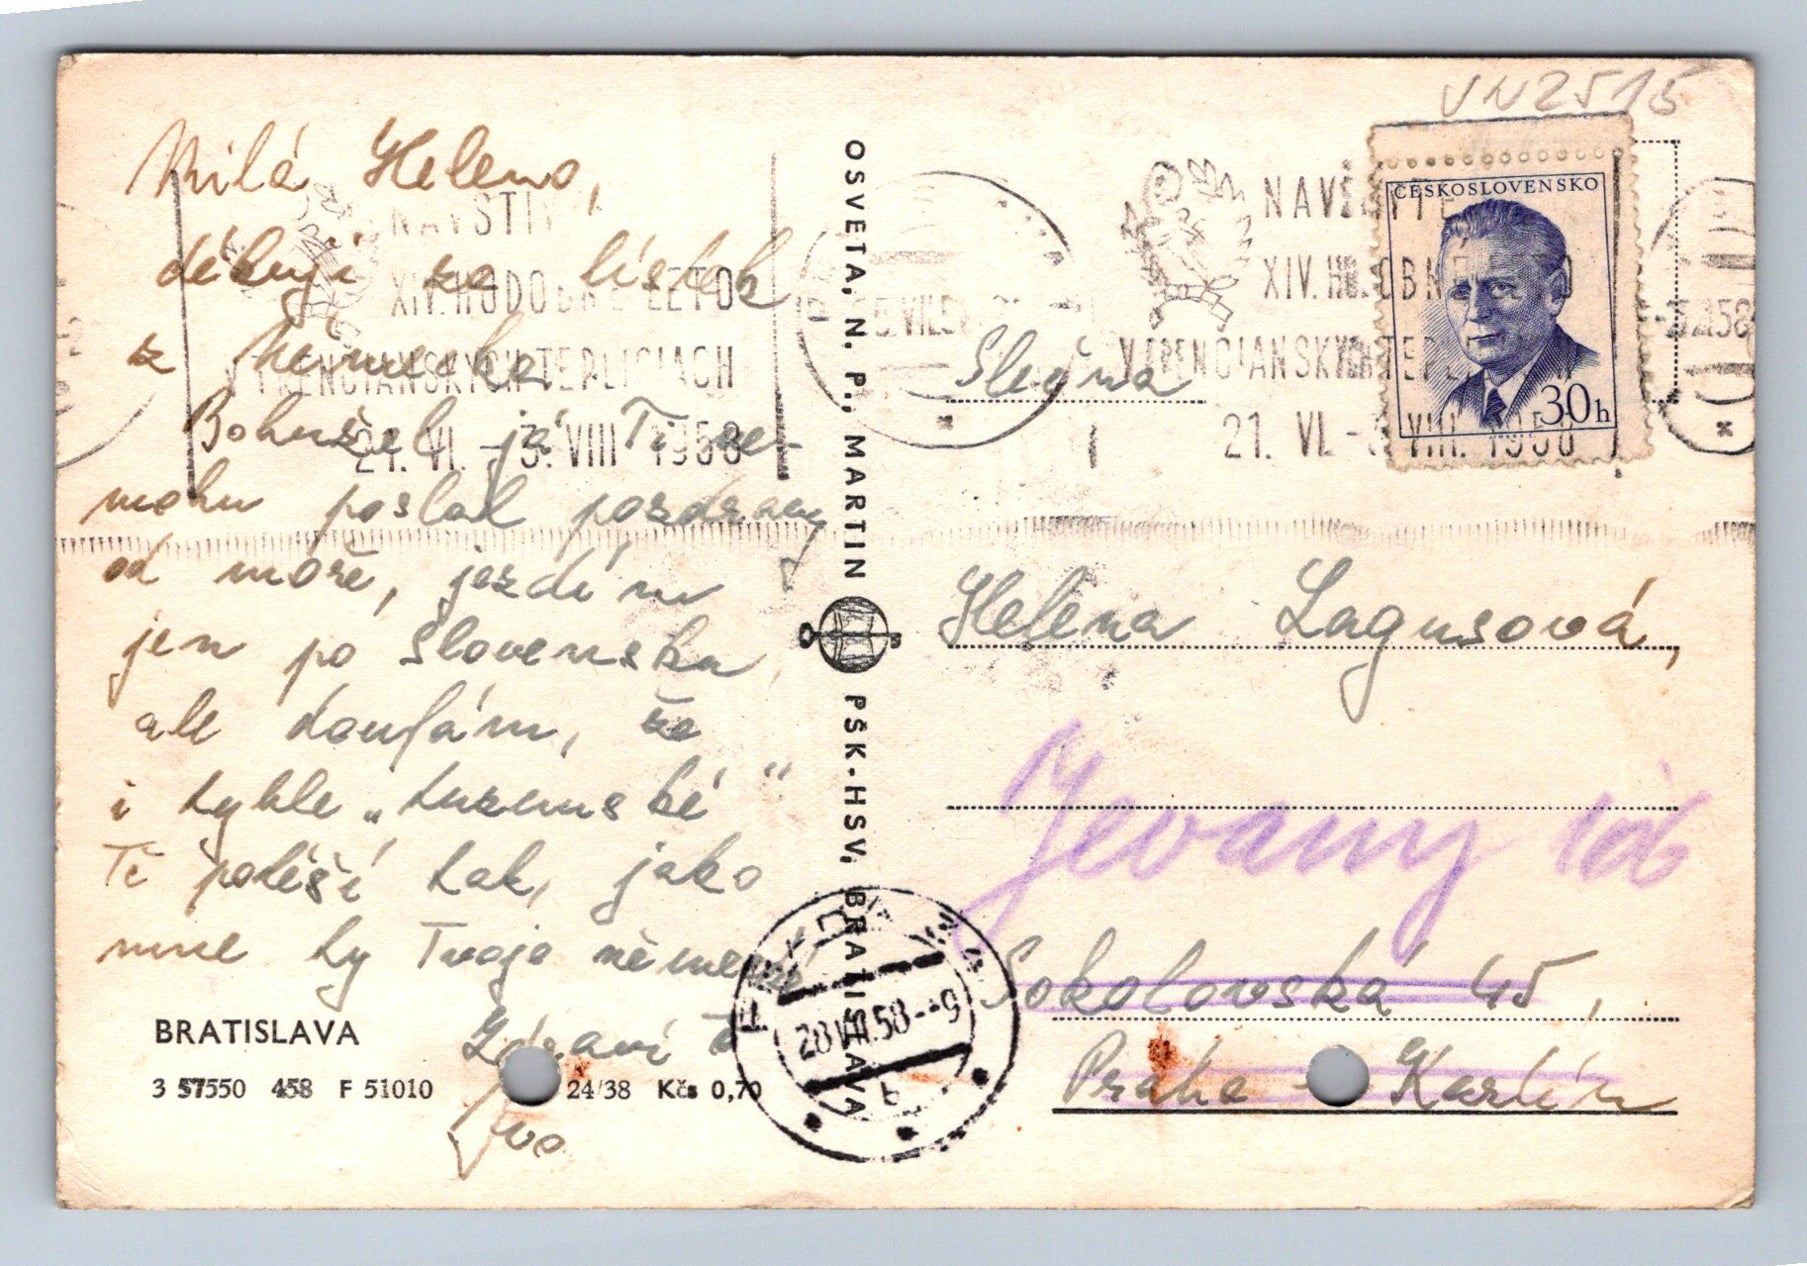 Milá Heleno,
děkuji za lístek
z Německa
Bohužel já Ti ne-
mohu poslat pozdravy
od moře, jezdím
jen po Slovensku,
ale doufám, že
i tyhle „tuzemské“
Tě potěší tak, jako
mne ty Tvoje německé
Zdraví Tě
Ivo
BRATISLAVA
3 57550 458 F 51010 24/38 Kčs 0,70
OSVETA, N. P., MARTIN
PŠK-HSV, BRATISLAVA
NAVŠTÍV
XIV. HUDOBNÉ LETO
TRENČIANSKYCH TEPLICIACH
21. VI. - 3. VIII 1958
VN2515
ČESKOSLOVENSKO
30h
NAVŠTÍVTE
XIV. HUDOBNÉ LETO
V TRENČIANSKYCH TEPLICIACH
21. VI. - 3. VIII. 1958
Slečna
Helena Lagusová,
Jevany 106
Sokolovská 45,
Praha - Karlín
28.VII.58--9
b